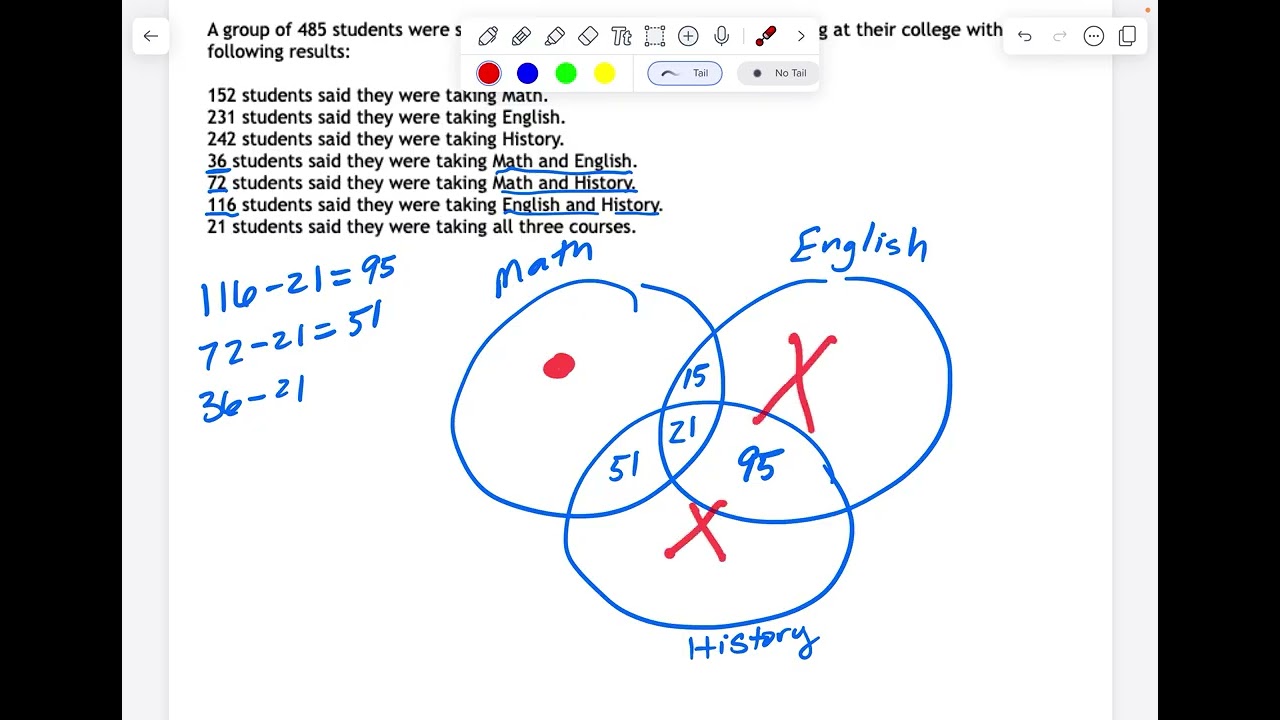 A group of 485 students were s g at their college with
following results:
Tt
Tail
No Tail
152 students said they were taking Math.
231 students said they were taking English.
242 students said they were taking History.
36 students said they were taking Math and English.
72 students said they were taking Math and History.
116 students said they were taking English and History.
21 students said they were taking all three courses.
116-21=95
72-21=51
36-21
Math
English
15
21
51
95
History